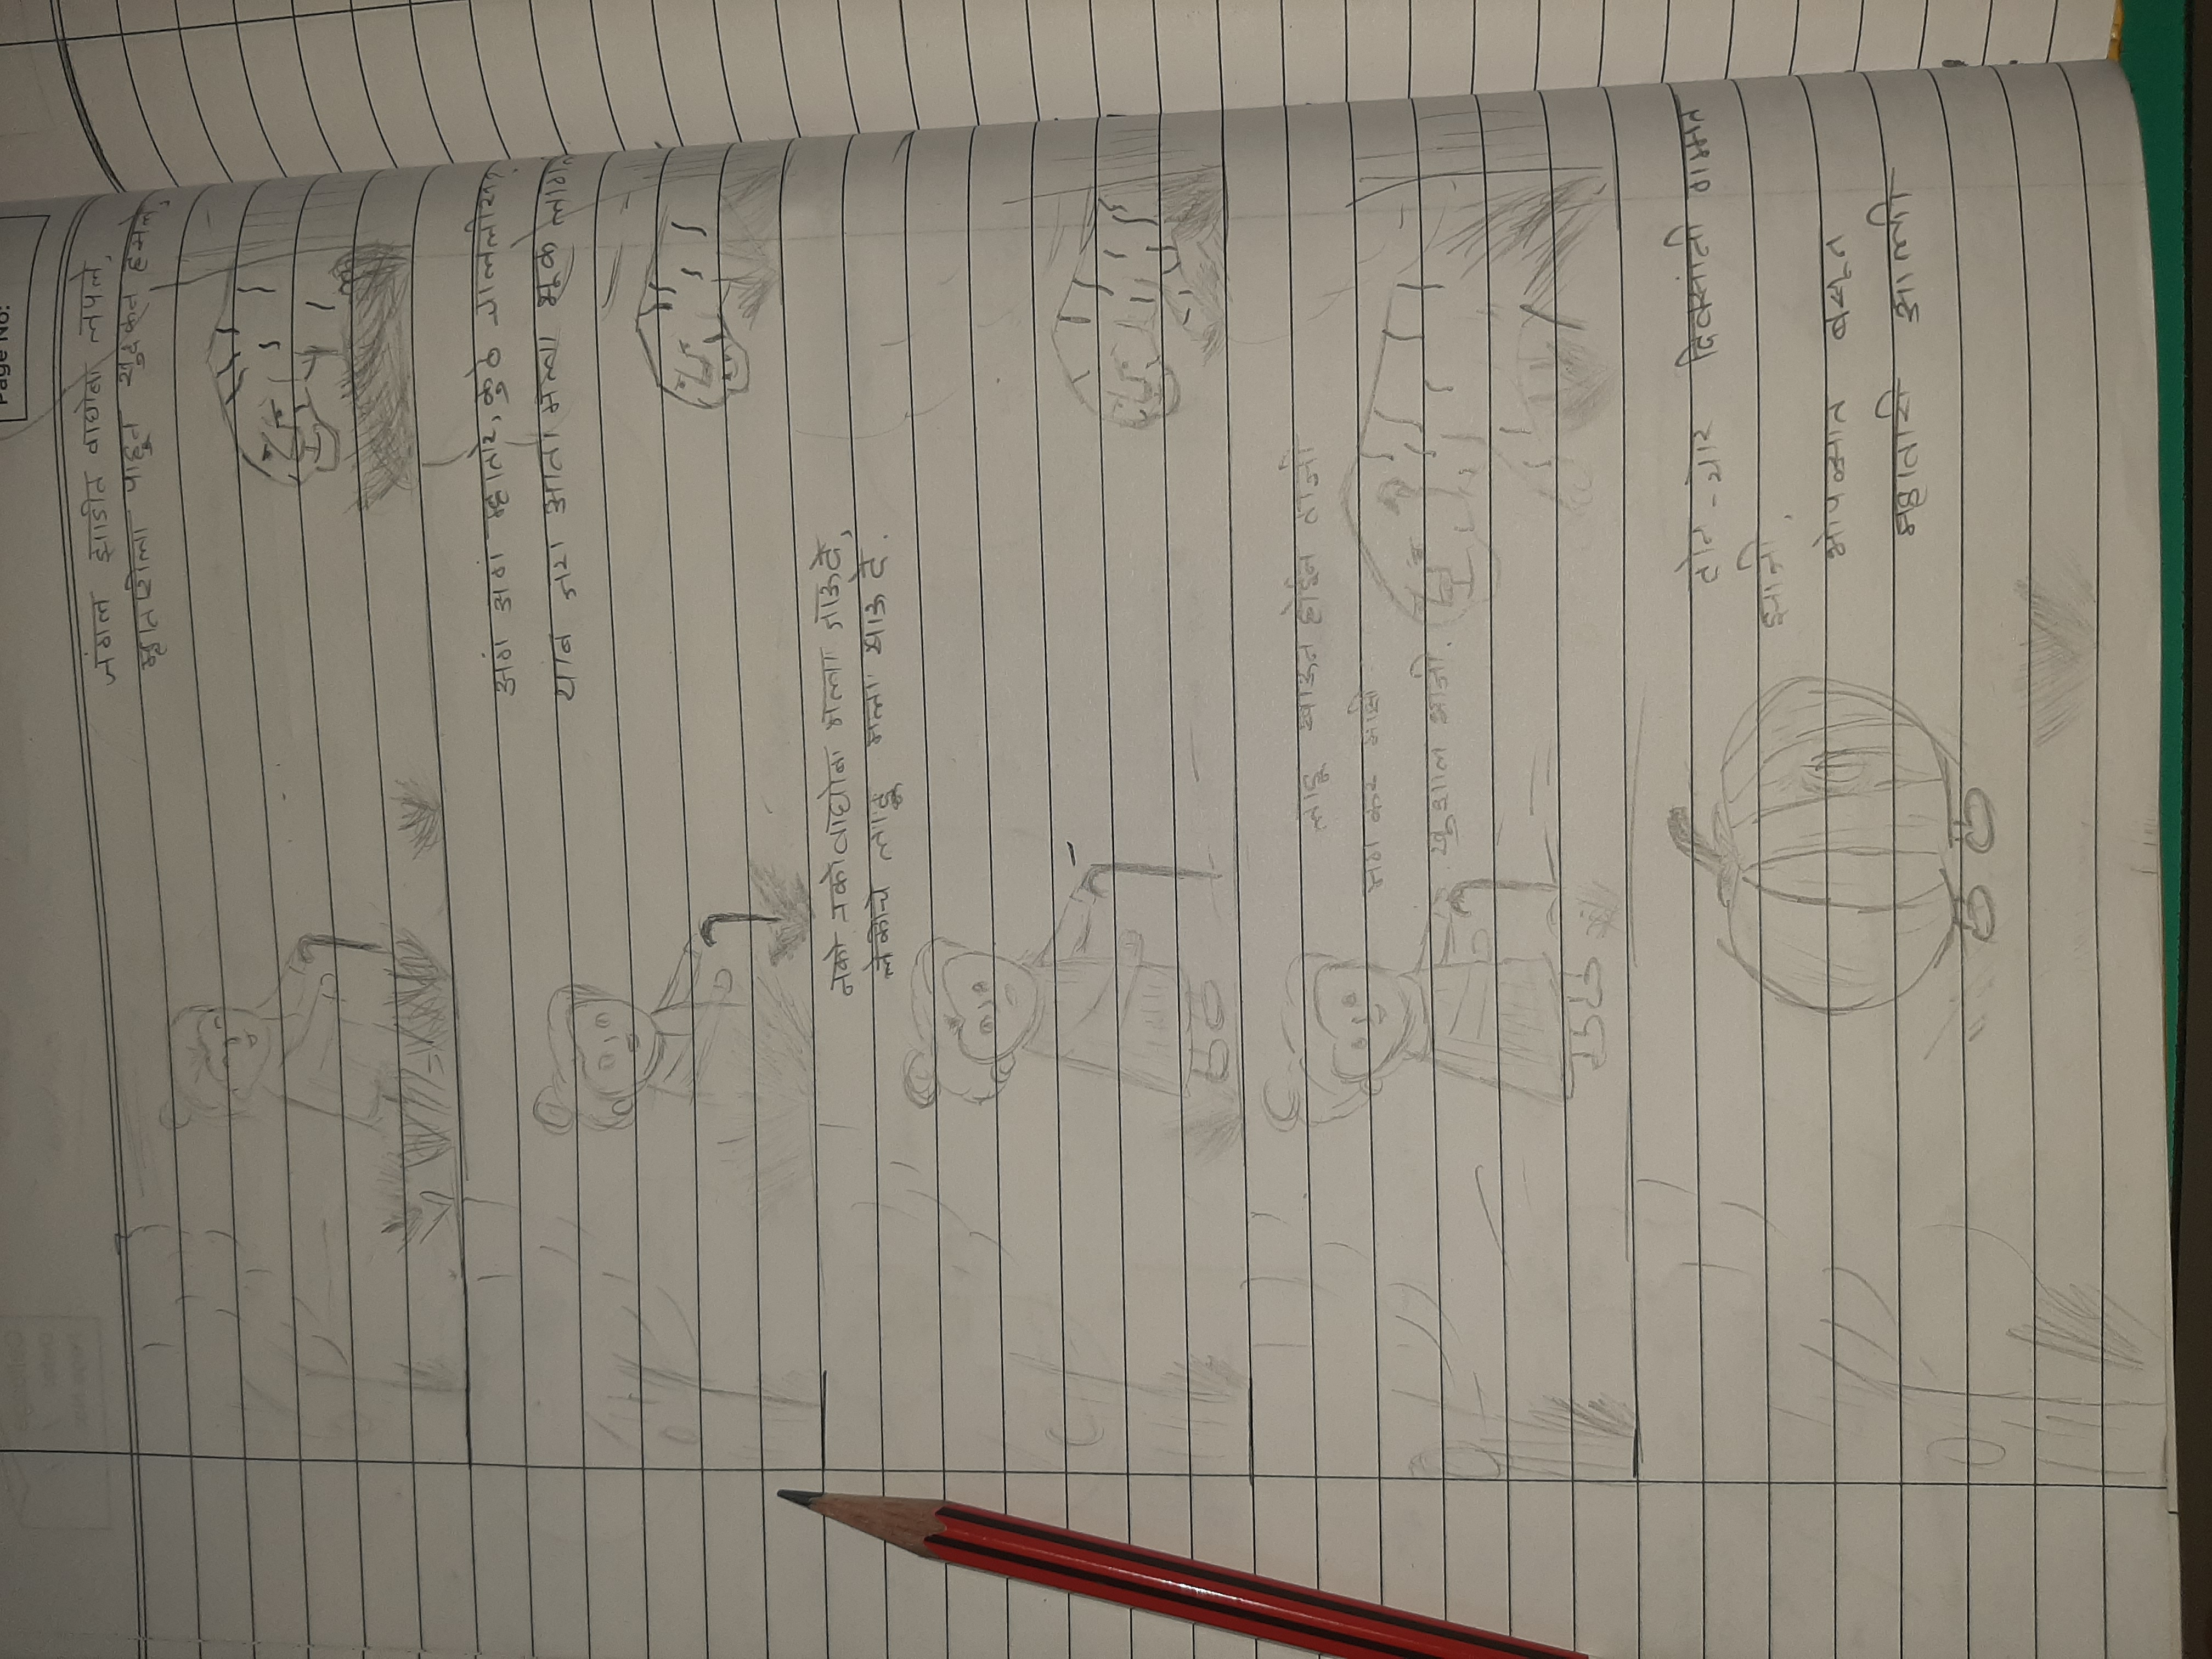 Page No:
जंगल झाडीत वाघोबा लपले,
म्हातारीला पाहून खुदकन हसले,
अगं अगं म्हातारे, कुठे चाललीस?
थांब जरा आता मला भूक लागली
नको नको वाघोबा मला जाऊ दे,
लेकीचे लाडू मला खाऊ दे.
लाडू खाऊन होईन ताजी
मग कर माझी
खुशाल भाजी.
दोन - चार दिवसांनी गम्मत
झाली,
भोपळ्यात बसून
म्हातारी आली